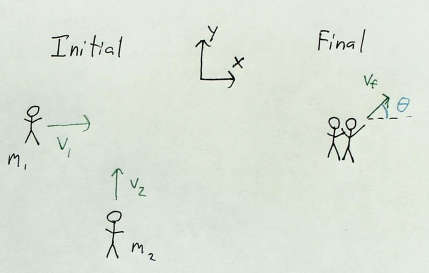 Initial
y
x
Final
m₁
V₁
V₂
m₂
V_f
θ